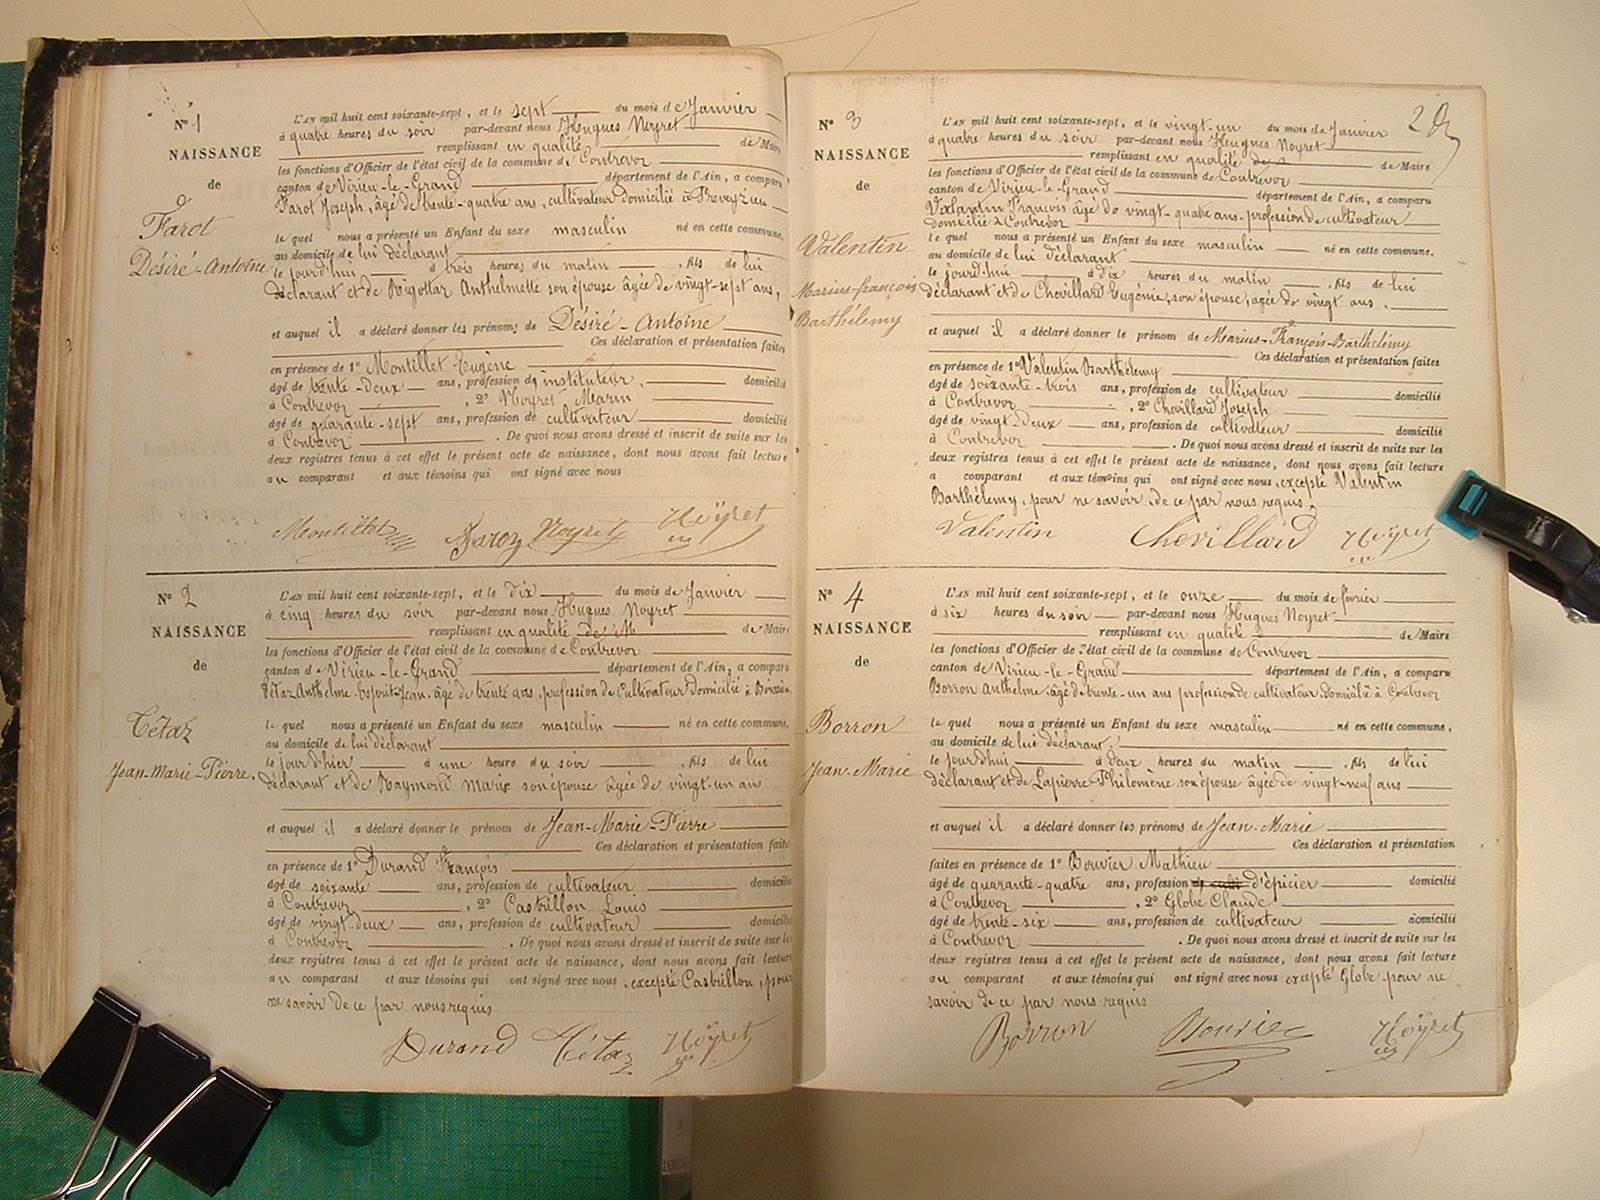 N° 1
NAISSANCE
de
Farot
Désiré-Antoine
L'AN mil huit cent soixante-sept, et le sept du mois de Janvier
à quatre heures du soir par-devant nous Hugues Neyret
remplissant en qualité de Maire
les fonctions d'Officier de l'état civil de la commune de Contrevoz
canton de Virieu-le-Grand département de l'Ain, a comparu
Farot Joseph, âgé de trente-quatre ans, cultivateur domicilié à Preveyzieu
le quel nous a présenté un Enfant du sexe masculin né en cette commune,
au domicile de lui déclarant
le jourd'hui à trois heures du matin, fils de lui
déclarant et de Rigottaz Anthelmette son épouse âgée de vingt-sept ans,
et auquel il a déclaré donner les prénoms de Désiré-Antoine
Ces déclaration et présentation faites
en présence de 1° Montillet Eugène
âgé de trente-deux ans, profession d' instituteur, domicilié
à Contrevoz, 2° Neyret Marin
âgé de quarante-sept ans, profession de cultivateur domicilié
à Contrevoz. De quoi nous avons dressé et inscrit de suite sur les
deux registres tenus à cet effet le présent acte de naissance, dont nous avons fait lecture
au comparant et aux témoins qui ont signé avec nous
Montillet Faroz Neyret Neÿret
N° 2
NAISSANCE
de
Tétaz
Jean-Marie-Pierre
L'AN mil huit cent soixante-sept, et le dix du mois de Janvier
à cinq heures du soir par-devant nous Hugues Neyret
remplissant en qualité de M de Maire
les fonctions d'Officier de l'état civil de la commune de Contrevoz
canton de Virieu-le-Grand département de l'Ain, a comparu
Tétaz Anthelme-Esprit-Jean, âgé de trente ans, profession de Cultivateur domicilié à
le quel nous a présenté un Enfant du sexe masculin né en cette commune,
au domicile de lui déclarant
le jour d'hier à une heure du soir, fils de lui
déclarant et de Raymond Marie son épouse âgée de vingt-un ans
et auquel il a déclaré donner le prénom de Jean-Marie-Pierre
Ces déclaration et présentation faites
en présence de 1° Durand François
âgé de soixante ans, profession de cultivateur domicilié
à Contrevoz, 2° Castrillon Louis
âgé de vingt-deux ans, profession de cultivateur domicilié
à Contrevoz. De quoi nous avons dressé et inscrit de suite sur les
deux registres tenus à cet effet le présent acte de naissance, dont nous avons fait lecture
au comparant et aux témoins qui ont signé avec nous, excepté Castrillon, pour
ne savoir de ce par nous requis
Durand Tétaz Neÿret
2
N° 3
NAISSANCE
de
Valentin
Marius-françois
Barthélemy
L'AN mil huit cent soixante-sept, et le vingt-un du mois de Janvier
à quatre heures du soir par-devant nous Hugues Neyret
remplissant en qualité de Maire
les fonctions d'Officier de l'état civil de la commune de Contrevoz
canton de Virieu-le-Grand département de l'Ain, a comparu
Valantin François âgé de vingt-quatre ans, profession de cultivateur
domicilié à Contrevoz
le quel nous a présenté un Enfant du sexe masculin né en cette commune,
au domicile de lui déclarant
le jourd'hui à dix heures du matin, fils de lui
déclarant et de Chevillard Eugénie, son épouse, agée de vingt ans.
et auquel il a déclaré donner le prénom de Marius-François-Barthélémy
Ces déclaration et présentation faites
en présence de 1° Valentin Barthélemy
âgé de soixante-trois ans, profession de cultivateur domicilié
à Contrevoz, 2° Chevillard Joseph
âgé de vingt-deux ans, profession de cultivateur domicilié
à Contrevoz. De quoi nous avons dressé et inscrit de suite sur les
deux registres tenus à cet effet le présent acte de naissance, dont nous avons fait lecture
a comparant et aux témoins qui ont signé avec nous, excepté Valentin
Barthélemy, pour ne savoir de ce par nous requis.
Valentin Chevillard Neÿret
N° 4
NAISSANCE
de
Borron
Jean-Marie
L'AN mil huit cent soixante-sept, et le onze du mois de fevrier
à six heures du soir par-devant nous Hugues Neyret
remplissant en qualité de Maire
les fonctions d'Officier de l'état civil de la commune de Contrevoz
canton de Virieu-le-Grand département de l'Ain, a comparu
Borron Anthelme, âgé de trente-un ans profession de cultivateur domicilié à Contrevoz
le quel nous a présenté un Enfant du sexe masculin né en cette commune,
au domicile de lui déclarant
le jourd'hui à deux heures du matin, fils de lui
déclarant et de Lapierre Philomène son épouse âgée de vingt-neuf ans
et auquel il a déclaré donner les prénoms de Jean-Marie
Ces déclaration et présentation
faites en présence de 1° Bouvier Mathieu
âgé de quarante-quatre ans, profession d'épicier domicilié
à Contrevoz, 2° Globe Claude
âgé de trente-six ans, profession de cultivateur domicilié
à Contrevoz. De quoi nous avons dressé et inscrit de suite sur les
deux registres tenus à cet effet le présent acte de naissance, dont nous avons fait lecture
au comparant et aux témoins qui ont signé avec nous excepté Globe pour ne
savoir de ce par nous requis
Borron Bouvier Neÿret